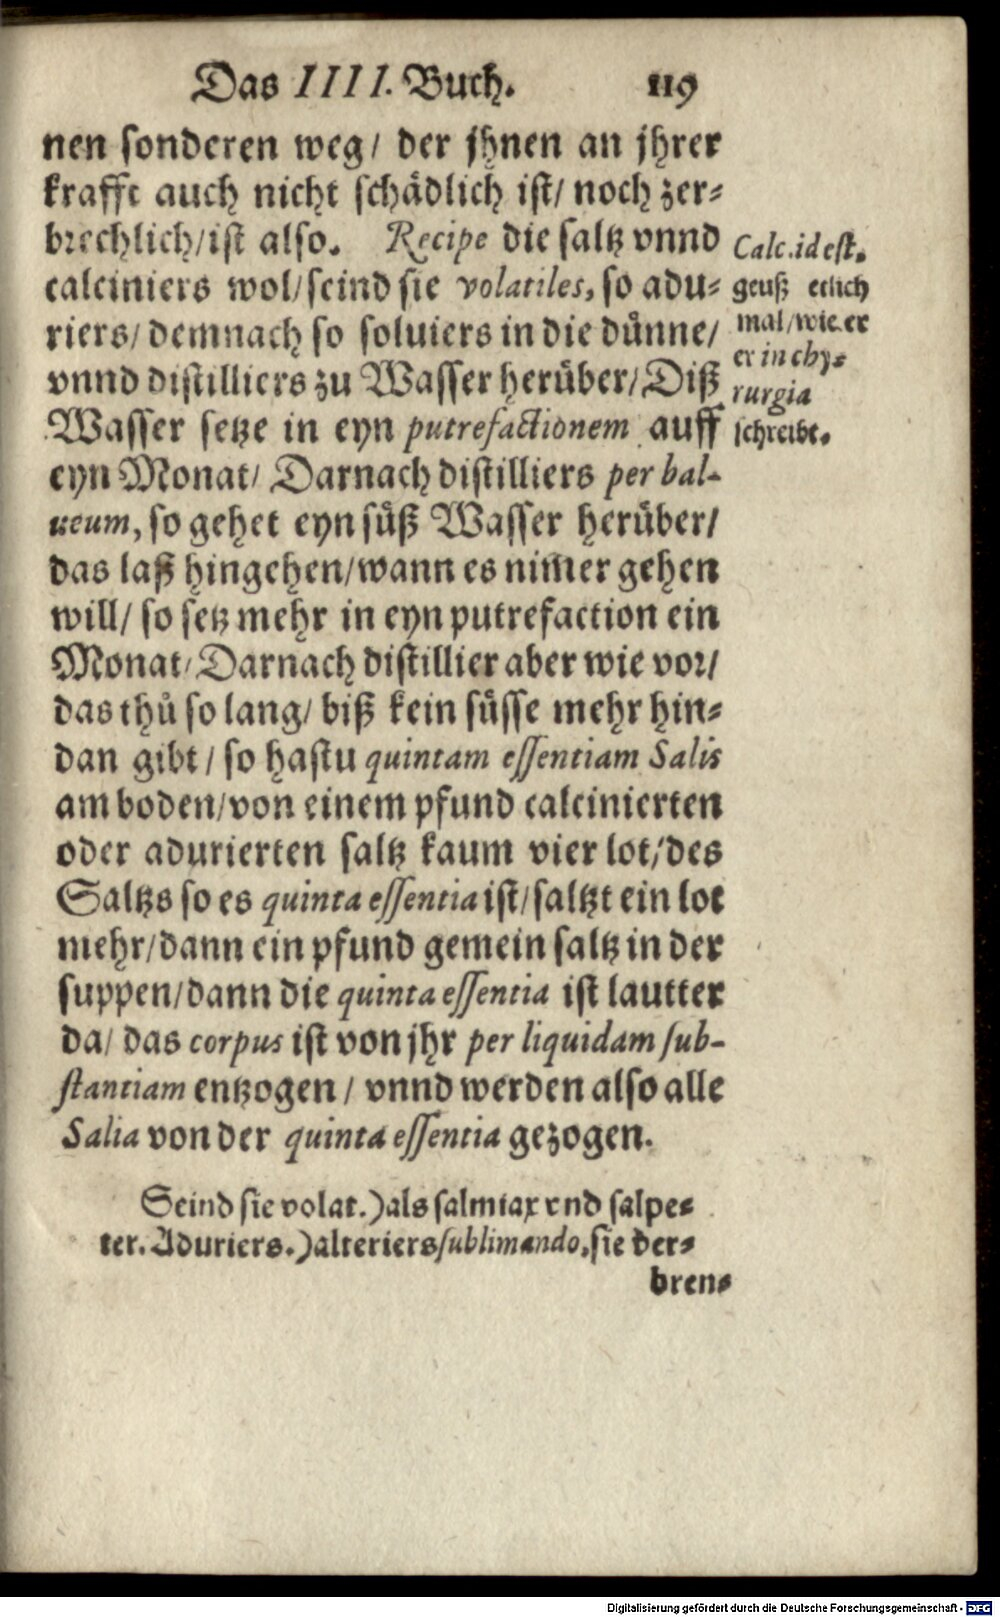 Das IIII. Buch. 119
nen sonderen weg/ der jhnen an jhrer
krafft auch nicht schådlich ist/ noch zer⸗
brechlich/ist also. Recipe die saltz vnnd
calciniers wol/seind sie volatiles, so adu⸗
riers/ demnach so soluiers in die důnne/
vnnd distilliers zu Wasser herůber/Diß
Wasser setze in eyn putrefactionem auff
eyn Monat/ Darnach distilliers per bal-
neum, so gehet eyn sůß Wasser herůber/
das laß hingehen/wann es nim̃er gehen
will/ so setz mehr in eyn putrefaction ein
Monat/Darnach distillier aber wie vor/
das thů so lang/ biß kein sůsse mehr hin⸗
dan gibt/ so hastu quintam essentiam Salis
am boden/von einem pfund calcinierten
oder adurierten saltz kaum vier lot/des
Saltzs so es quinta essentia ist/saltzt ein lot
mehr/dann ein pfund gemein saltz in der
suppen/dann die quinta essentia ist lautter
da/ das corpus ist von jhr per liquidam sub-
stantiam entzogen/ vnnd werden also alle
Salia von der quinta essentia gezogen.
Calc. id est.
geuß etlich
mal/wie er
er in chy⸗
rurgia
schreibt.
Seind sie volat.)als salmiax vnd salpe⸗
ter. Aduriers.)alteriers sublimando, sie ver⸗
bren⸗
Digitalisierung gefördert durch die Deutsche Forschungsgemeinschaft - DFG